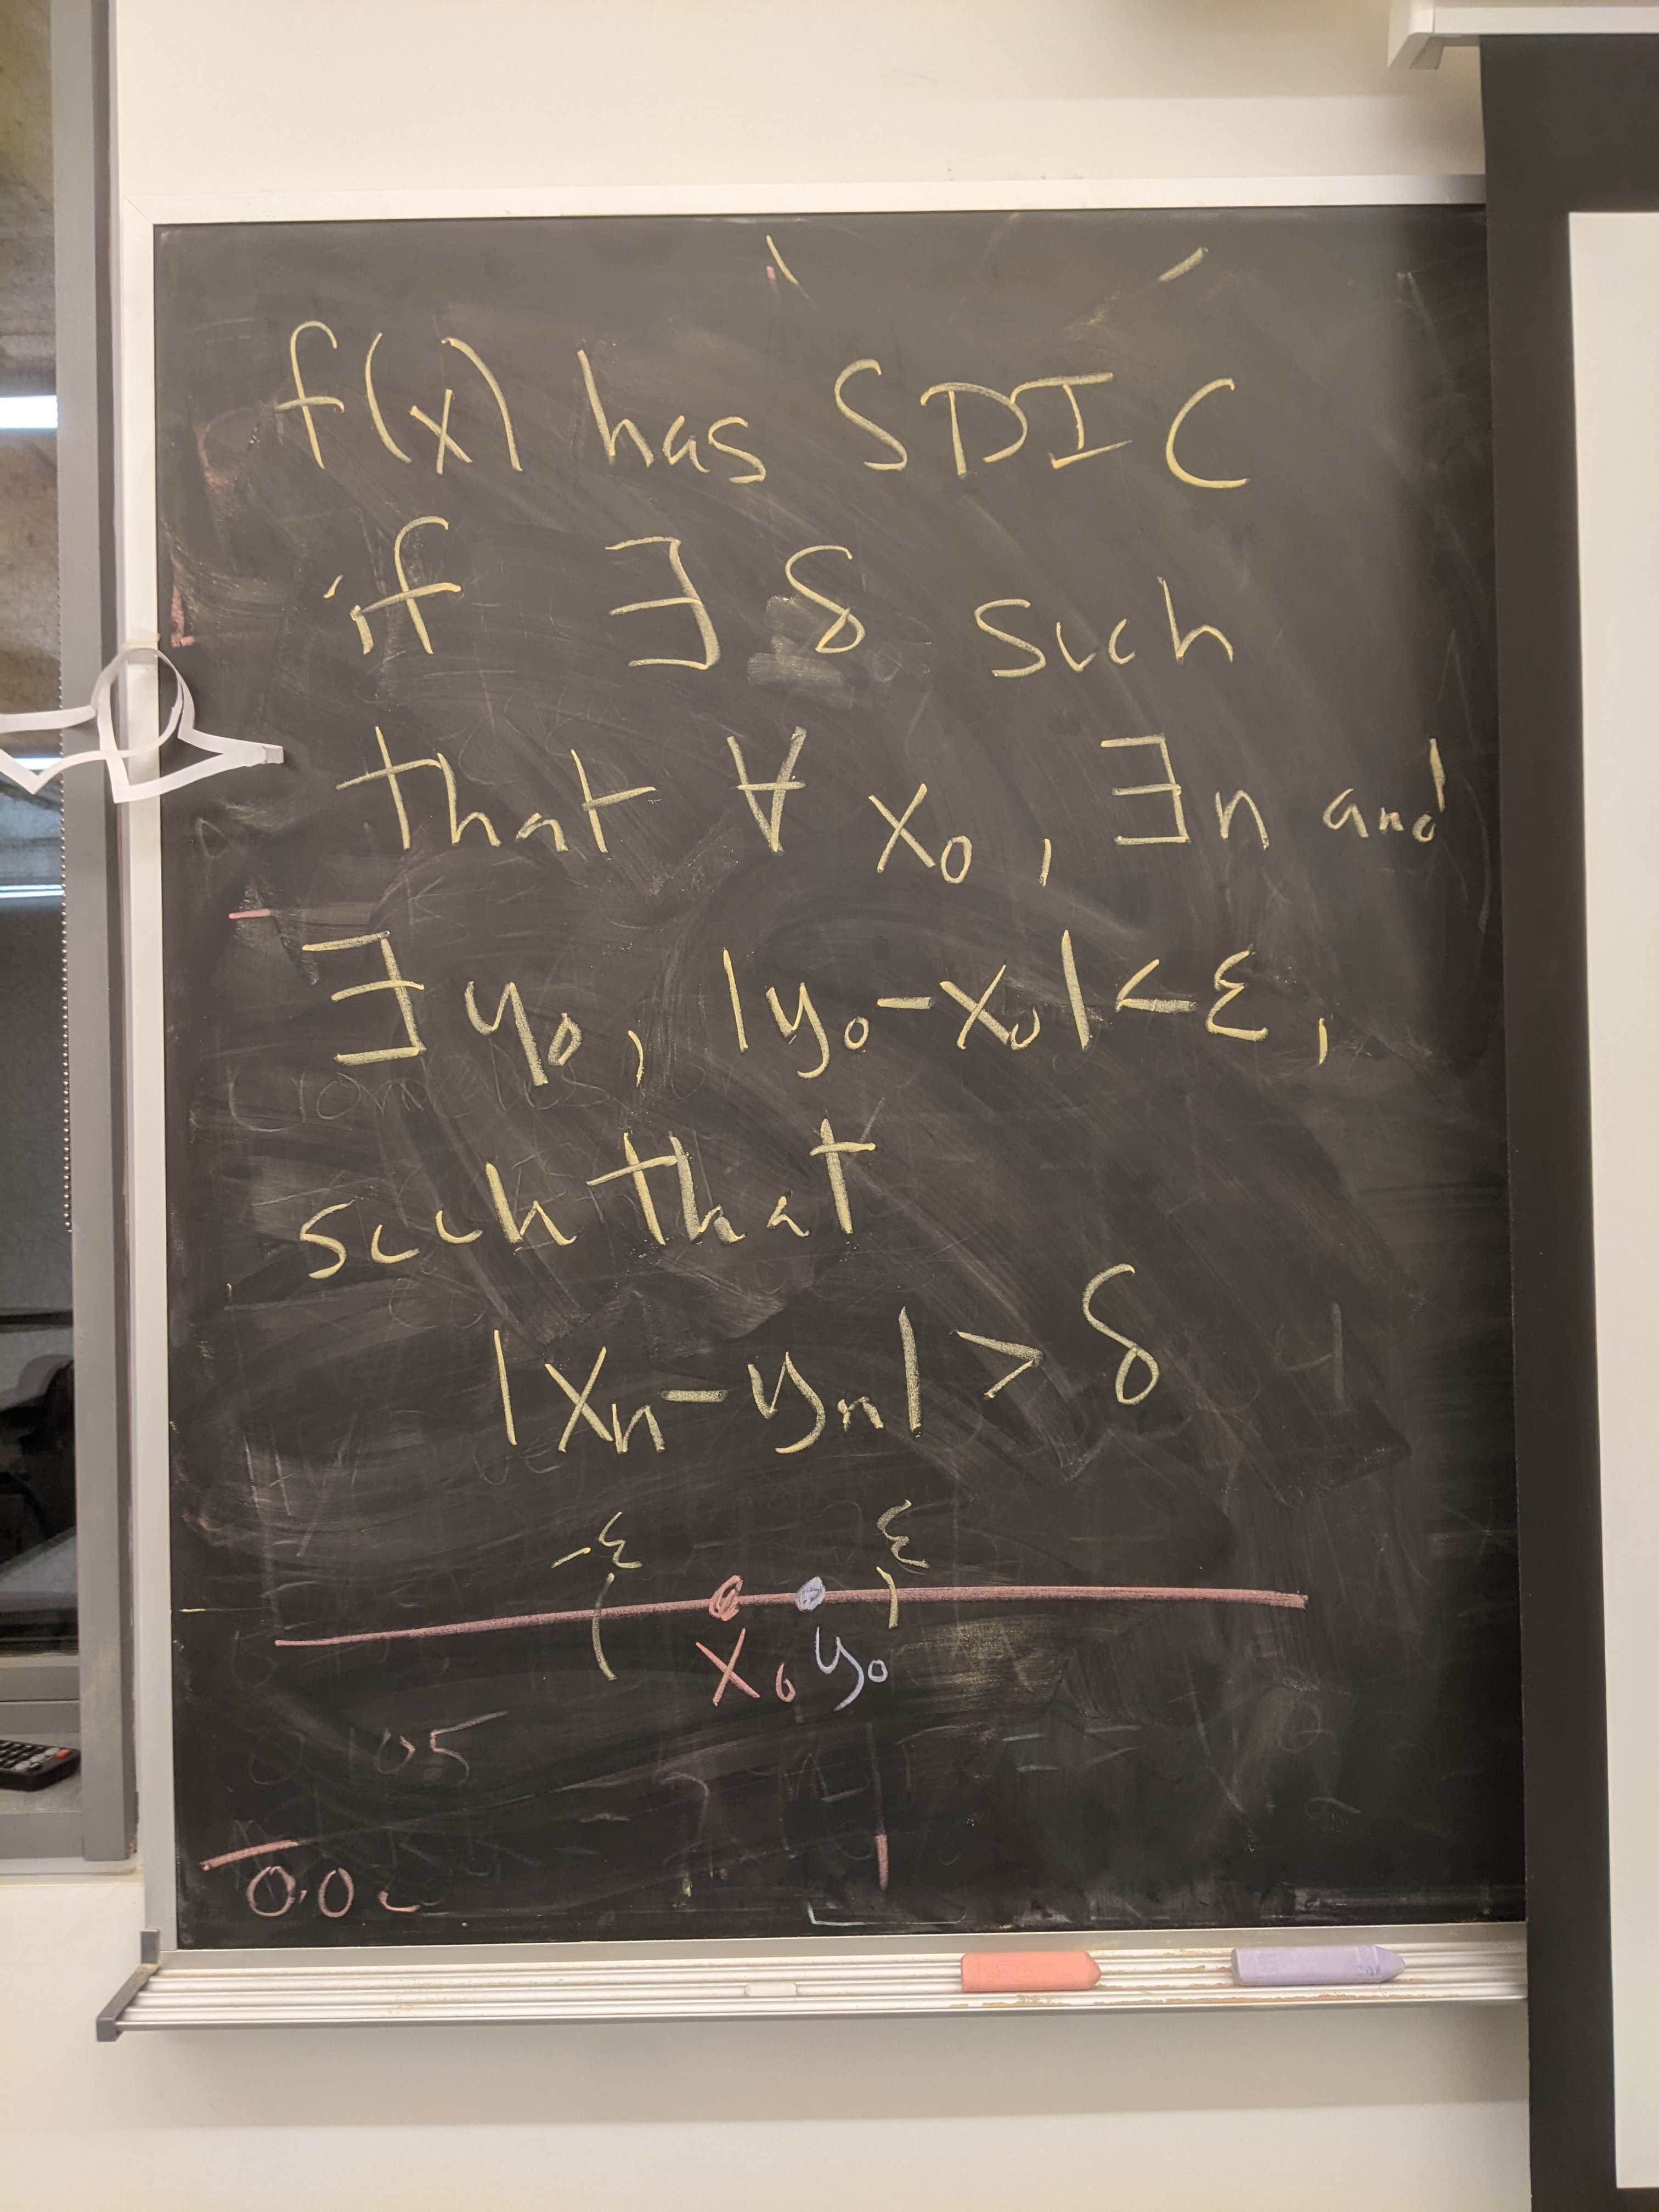 f(x) has SDIC
if ∃ δ such
that ∀ x₀, ∃n and
∃ y₀, |y₀-x₀|<ε,
such that
|xₙ-yₙ| > δ
-ε ε
( )
x₀ y₀
0.0